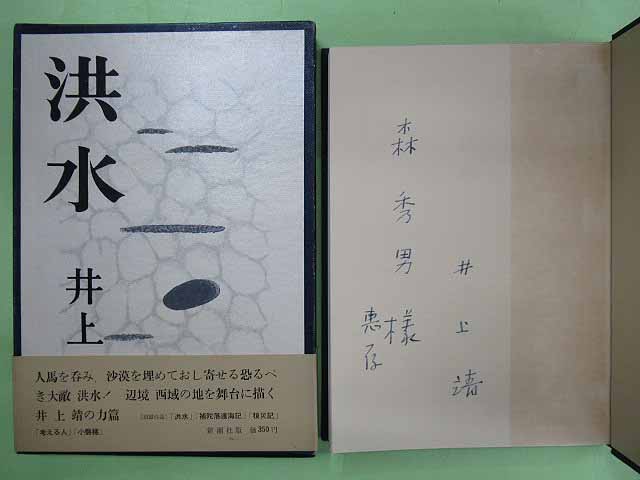 洪水
井上
人馬を呑み、沙漠を埋めておし寄せる恐るべ
き大敵 洪水！ 辺境 西域の地を舞台に描く
井上靖の力篇
「洪水」「補陀落渡海記」「核災記」
「考える人」「小磐梯」
新潮社版 価350円
森秀男様
恵存
井上靖